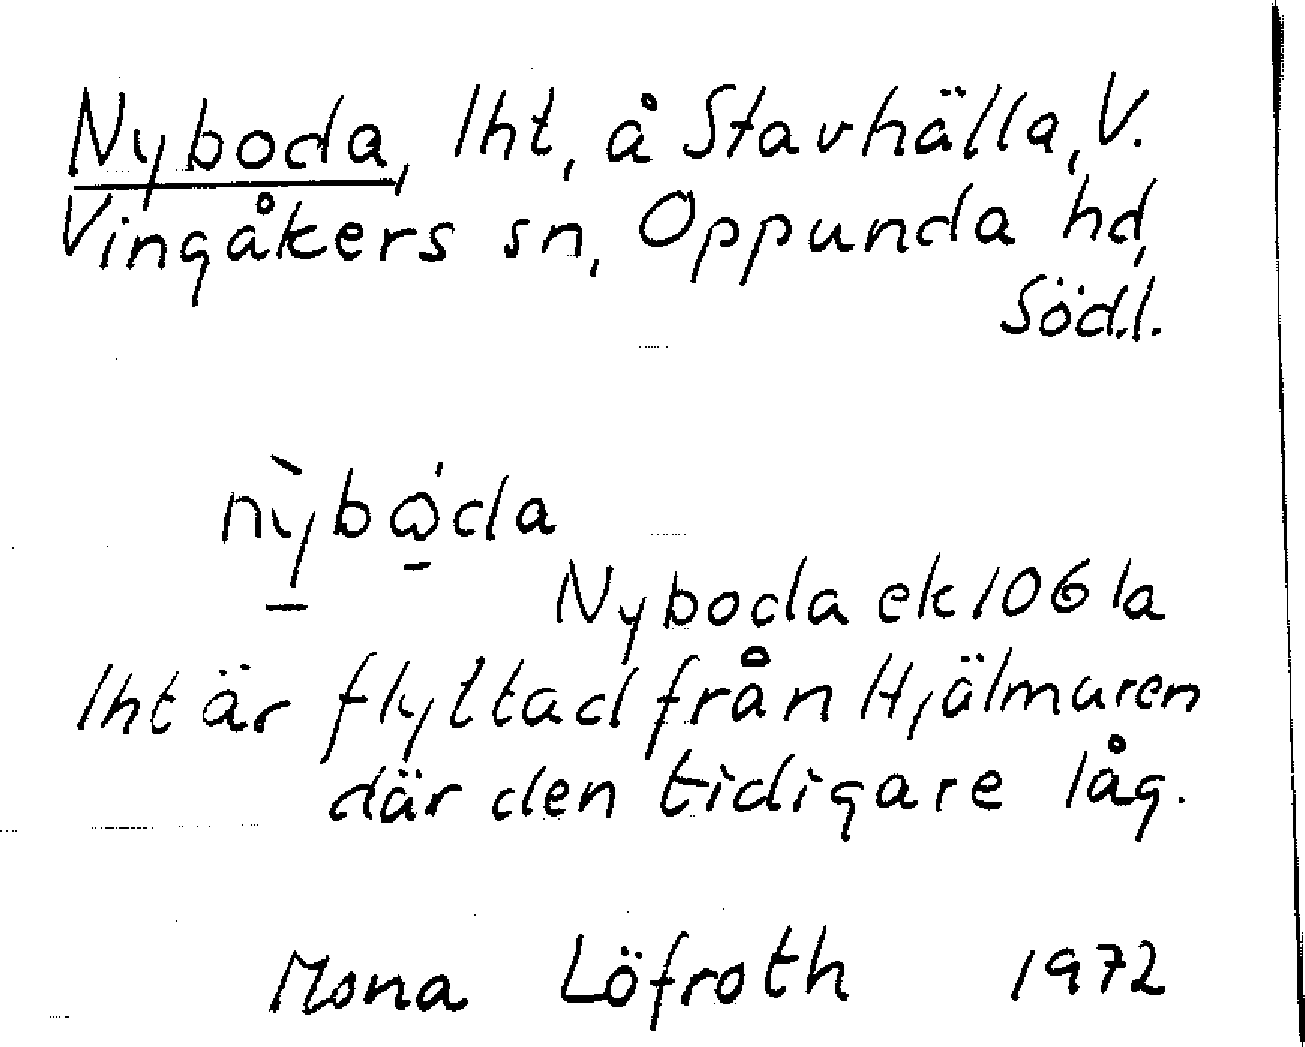 Nyboda, lht, å Stavhälla, V.
Vingåkers sn, Oppunda hd,
Södl.
nỳbώ̲da
Nyboda ek 106 1a
lht är flyttad från Hjälmaren
där den tidigare låg.
Mona Löfroth 1972